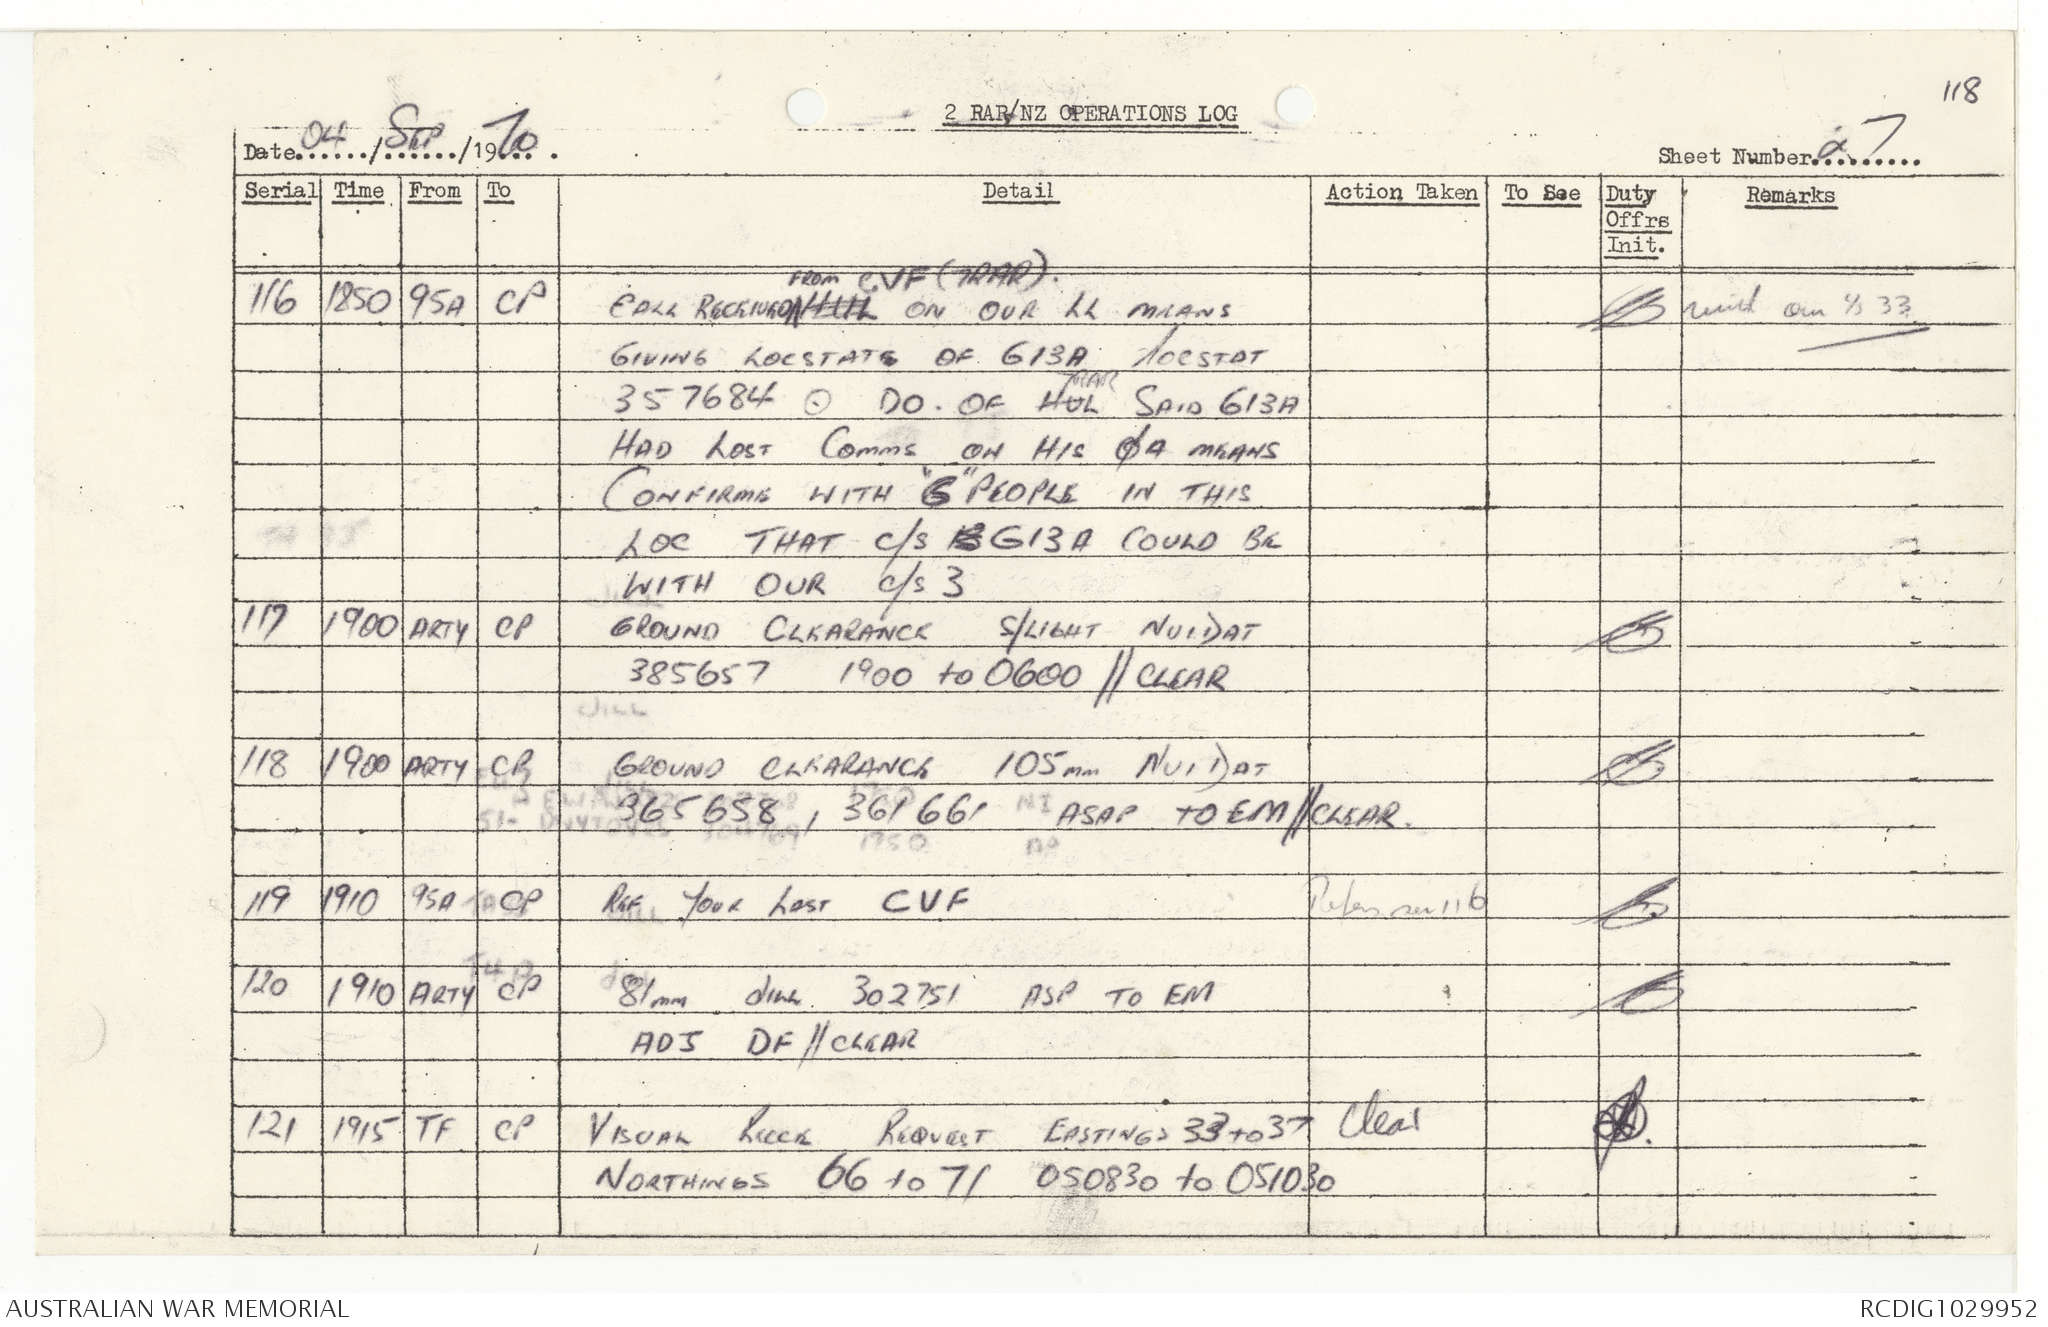 118
2 RAR/NZ OPERATIONS LOG
Date 04/Sep/1970. Sheet Number 27
Serial Time From To Detail Action Taken To See Duty Offrs Init. Remarks
FROM CVF (7RAR).
116 1850 95A CP CALL RECEIVED ON OUR LL MEANS with our c/s 33
GIVING LOCSTATS OF G13A LOCSTAT
7RAR
357684 ⊙ DO. OF HUL SAID G13A
HAD LOST COMMS ON HIS ØA MEANS
CONFIRME WITH "G" PEOPLE IN THIS
LOC THAT C/S G13A COULD BE
WITH OUR C/S 3
117 1900 ARTY CP GROUND CLEARANCE S/LIGHT NUI DAT
385657 1900 to 0600 // CLEAR
JILL
118 1900 ARTY CP GROUND CLEARANCE 105mm NUI DAT
365658, 361661 ASAP TO EM // CLEAR.
119 1910 95A CP REF YOUR LAST CVF Refer ser 116
120 1910 ARTY CP 81mm JILL 302751 ASP TO EM
ADJ DF // CLEAR
121 1915 TF CP VISUAL RECCE REQUEST EASTINGS 33 to 37 Clear
NORTHINGS 66 to 71 050830 to 051030
AUSTRALIAN WAR MEMORIAL RCDIG1029952